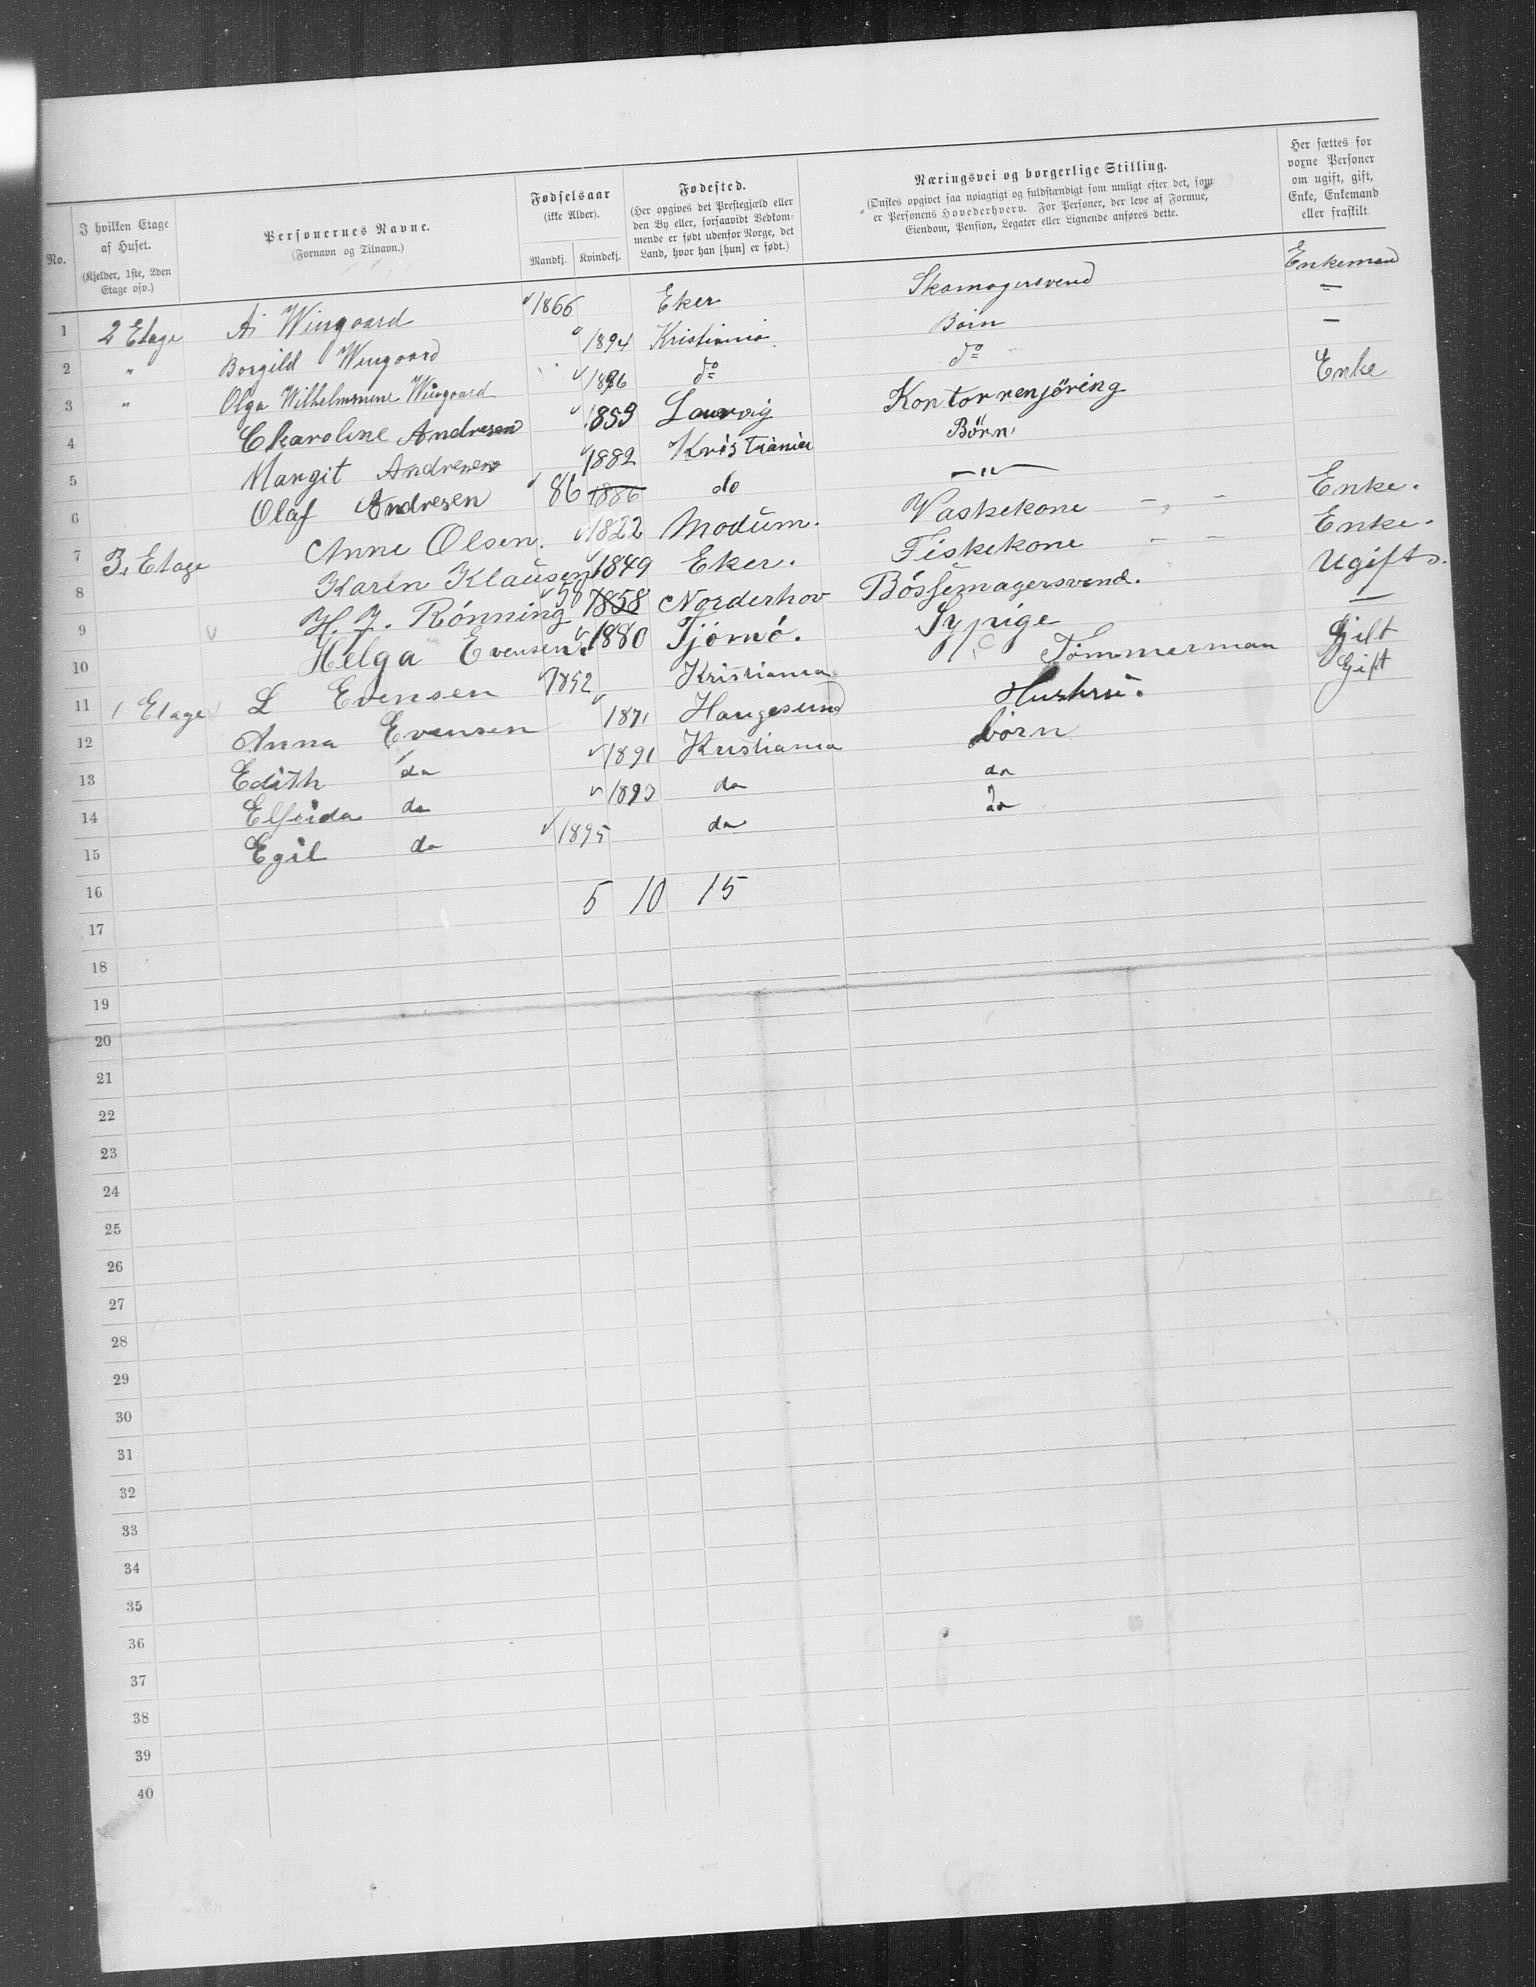 No.
I hvilken Etage af Huset.
(Kjelder, 1ste, 2den Etage osv.)
Personernes Navne.
(Fornavn og Tilnavn.)
Fødselsaar
(ikke Alder).
Mandkj. Kvindekj.
Fødested.
(Her opgives det Prestegjæld eller
den By eller, forsaavidt Vedkom-
mende er født udenfor Norge, det
Land, hvor han [hun] er født.)
Næringsvei og borgerlige Stilling.
(Ønskes opgivet saa nøiagtigt og fuldstændigt som muligt efter det, som
er Personens Hovederhverv. For Personer, der leve af Formue,
Eiendom, Pension, Legater eller Lignende anføres dette.
Her sættes for
voxne Personer
om ugift, gift,
Enke, Enkemand
eller fraskilt
1 2 Etage A. Wingaard 1866 Eker Skomagersvend Enkemand
2 " Borgild Wingaard 1894 Kristiania Børn —
3 " Olga Wilhelmmine Wingaard 1886 do do —
4 Charoline Andresen 1853 Laurvig Kontorrenjøring Enke
5 Margit Andresen 1882 Kristiania Børn
6 Olaf Andresen 86 1886 do —"—
7 3. Etage Anne Olsen. 1822 Modum. Vaskekone - , - Enke.
8 Karin Klausen 1849 Eker. Fiskekone - - Enke.
9 H. J. Rönning 58 1858 Norderhov Bössemagersvend. Ugift.
10 Helga Evensen. 1880 Tjömö. Sypige —
11 1 Etage L Evensen 1852 Kristiania Tømmerman Gift
12 Anna Evensen 1871 Haugesund Hustru. Gift
13 Edith do 1891 Kristiania börn
14 Elfrida do 1893 do do
15 Egil do 1895 do do
16 5 10 15
17
18
19
20
21
22
23
24
25
26
27
28
29
30
31
32
33
34
35
36
37
38
39
40